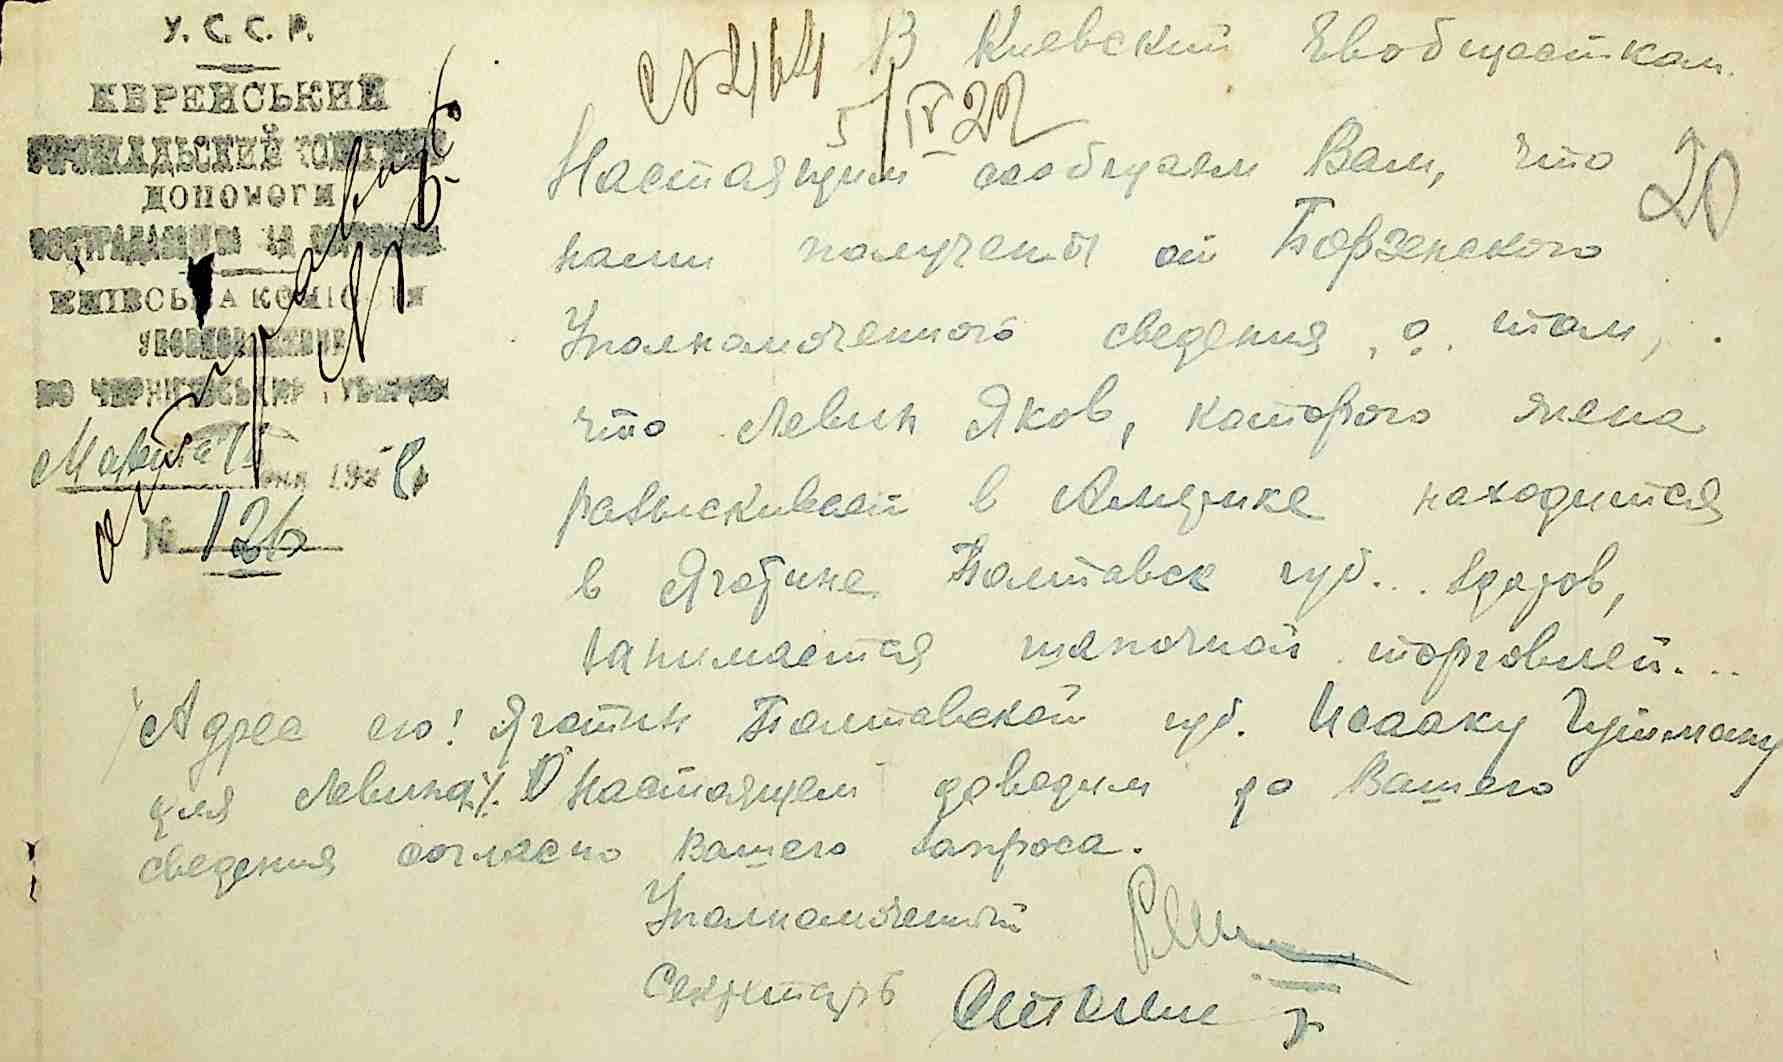 У.С.С.Р.
ЄВРЕЙСЬКИЙ
ГРОМАДЬСКИЙ КОМІТЕТ
ДОПОМОГИ
ПОСТРАДАВШИМ ВІД ПОГРОМІВ
КИЇВСЬКА КОМІСІЯ
УПОВНОВАЖЕНИЙ
ПО ЧЕРНИГІВСЬКИЙ ГУБЕРНІЇ
Марта 192
№ 126
№ 464
5/IV 22
20
В Киевский Евобщестком.
Настоящим сообщаем Вам, что
нами получены от Борзенского
Уполномоченного сведения о том,
что Левин Яков, которого жена
разыскивает в Америке находится
в Яготине Полтавск губ. здоров,
занимается шапочной торговлей.
Адрес его: Яготин Полтавской губ. Исааку Гутману
для Левина. О настоящем доводим до Вашего
сведения согласно Вашего запроса.
Уполномоченный
Секретарь